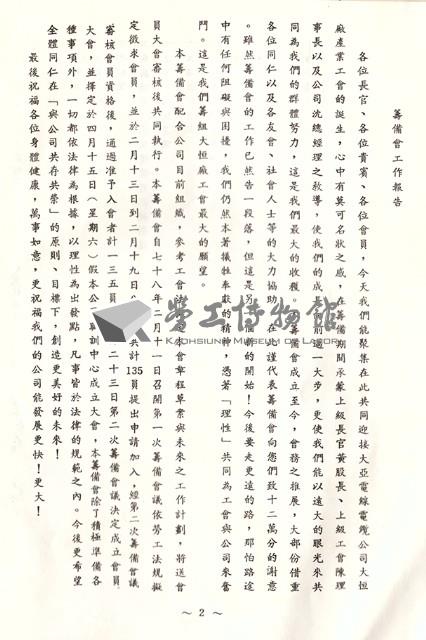 籌備會工作報告
各位長官、各位貴賓、各位會員,今天我們能聚集在此共同迎接大亞電線電纜公司大恒
廠產業工會的誕生,心中有莫可名狀之感,在籌備期間承蒙上級長官黃股長、上級工會陳理
事長以及公司沈總經理之教導,使我們的成長向前邁一大步,更使我們能以遠大的眼光來共
同為我們的群體努力,這是我們最大的收穫。 籌備會成立至今,會務之推展,大部份借重
各位同仁以及各友會、社會人士等的大力協助,在 謹代表籌備會向您們致十二萬分的謝意
。雖然籌備會的工作已然告一段落,但這是另一個新的開始!今後要走更遠的路,那怕路途
中有任何阻礙與困擾,我們仍然本著犧牲奉獻的精神,憑著「理性」共同為工會與公司來奮
鬥。這是我們籌組大恒廠工會最大的願望。
本籌備會配合公司目前組織,參考工會法 本會章程草案與未來之工作計劃,將送會
員大會審核後共同執行。本籌備會自七十八年二月十一日召開第一次籌備會議依勞工法規擬
定徵求會員,並於二月十三日到二月十九日 共計135員提出申請加入,經第二次籌備會議
審核會員資格後,通過准予入會者計一三五員, 二十三日第二次籌備會議決定成立會員
大會,並擇定於四月十五日(星期六)假本公 訓中心成立大會,本籌備會除了積極準備各
種事項外,一切都依法律為根據,以理性為出發點,凡事皆於法律的規範之內。今後更希望
全體同仁在「與公司共存共榮」的原則、目標下,創造更美好的未來!
最後祝福各位身體健康,萬事如意,更祝福我們的公司能發展更快!更大!
~ 2 ~
勞工博物館
KAOHSIUNG MUSEUM OF LABOR